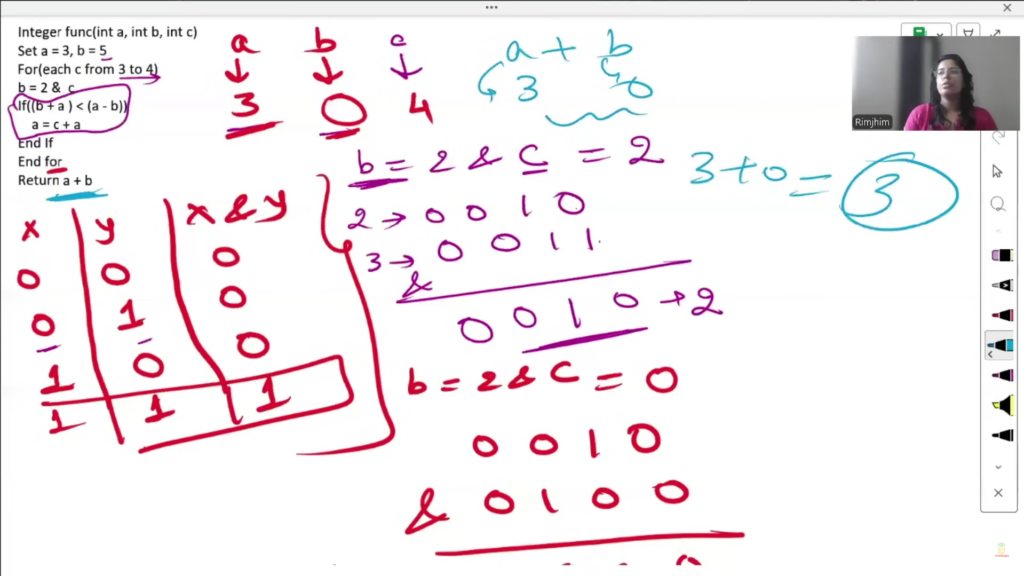 Integer func(int a, int b, int c)
Set a = 3, b = 5
For(each c from 3 to 4)
b = 2 & c
If((b + a ) < (a - b))
a = c + a
End If
End for
Return a + b
a b c
3 0 4
a + b
3 0
3 + 0 = 3
b = 2 & C = 2
2 → 0 0 1 0
3 → 0 0 1 1
&
0 0 1 0 → 2
b = 2 & C = 0
0 0 1 0
& 0 1 0 0
x y x & y
0 0 0
0 1 0
1 0 0
1 1 1
Rimjhim